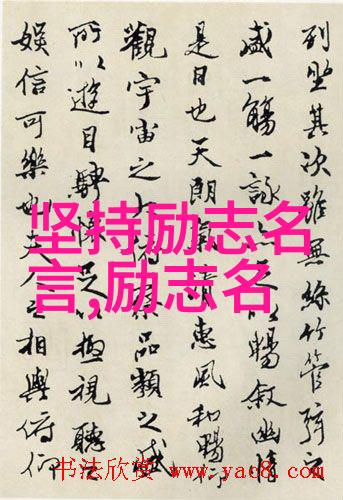 列坐其次雖無絲竹管弦之
盛一觴一詠以暢敘幽情
是日也天朗氣清惠風和暢仰
觀宇宙之大俯察品類之盛
所以遊目騁懷足以極視聽之
娛信可樂也夫人之相與俯仰
坚持励志名
言,励志名
书法欣赏 www.yac8.com